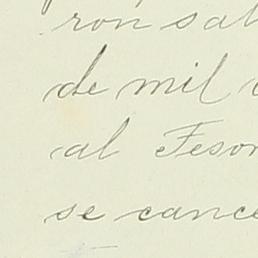 ron sal
de mil
al Tesor
se cance